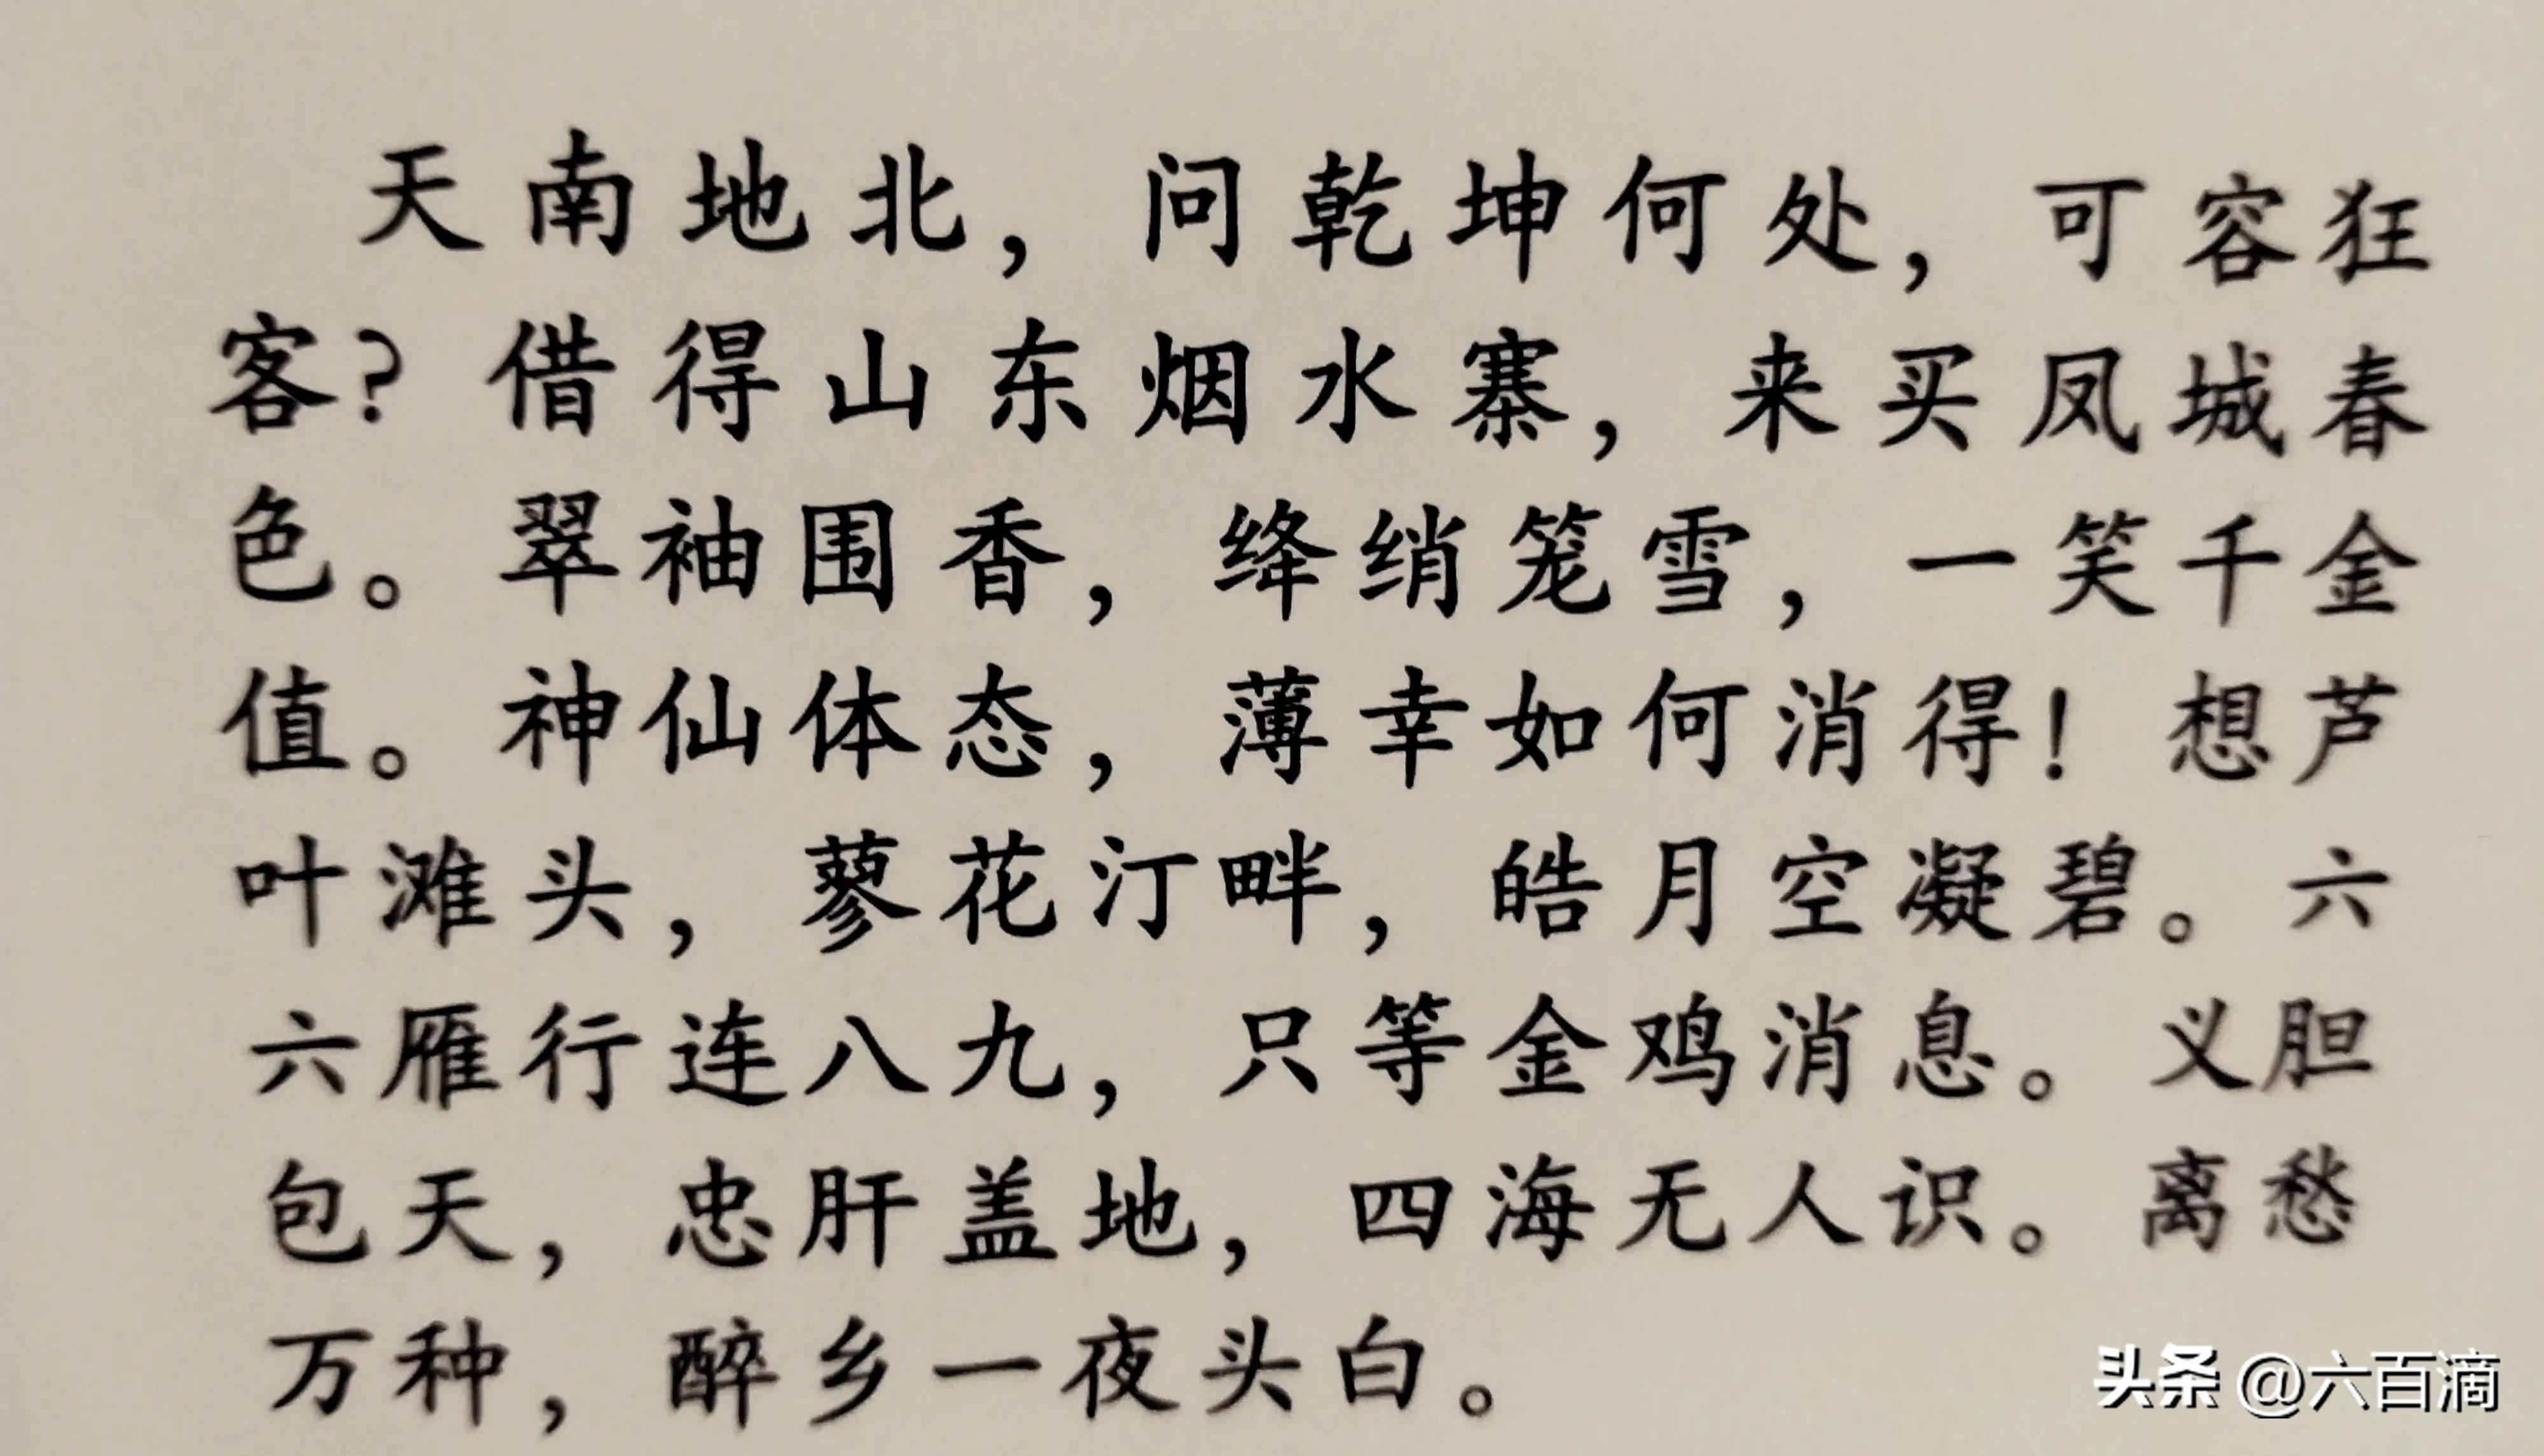 天南地北，问乾坤何处，可容狂
客？借得山东烟水寨，来买凤城春
色。翠袖围香，绛绡笼雪，一笑千金
值。神仙体态，薄幸如何消得！想芦
叶滩头，蓼花汀畔，皓月空凝碧。六
六雁行连八九，只等金鸡消息。义胆
包天，忠肝盖地，四海无人识。离愁
万种，醉乡一夜头白。
头条 @六百滴